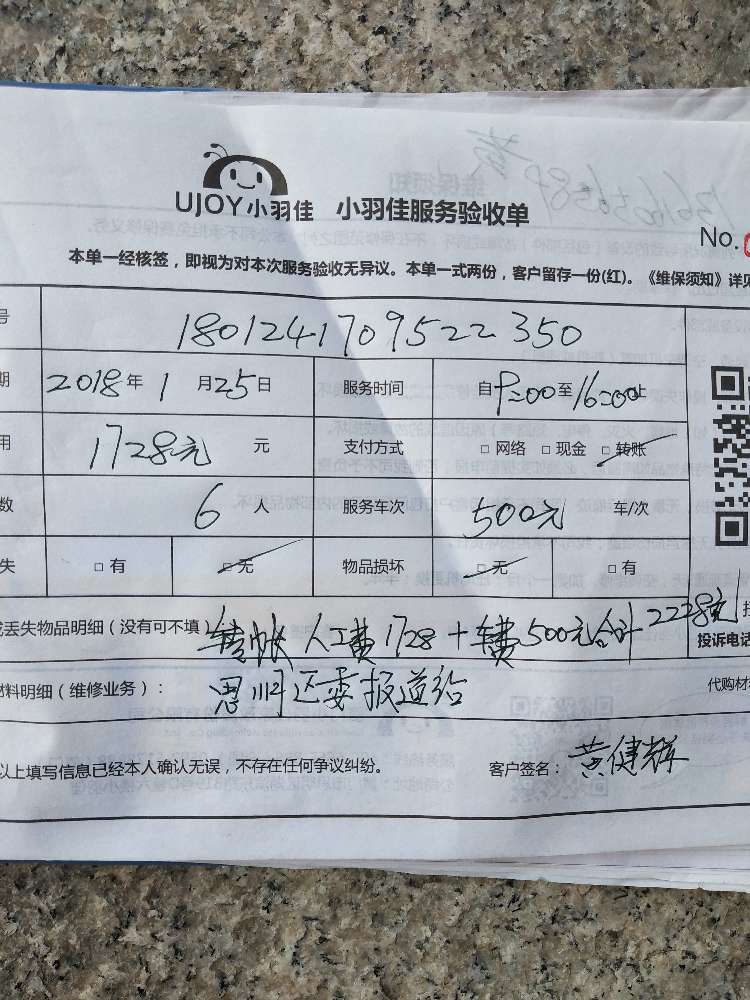 UJOY小羽佳 小羽佳服务验收单
No.
本单一经核签，即视为对本次服务验收无异议。本单一式两份，客户留存一份(红)。《维保须知》详见
号 180124170952235​0
期 2018年1月25日 服务时间 自9:00至16:00止
用 1728元 元 支付方式 □ 网络 □ 现金 □ 转账
数 6 人 服务车次 500元 车/次
失 □ 有 □ 无 物品损坏 □ 无 □ 有
或丢失物品明细（没有可不填） 转帐 人工费1728+车费500元合计2228元
投诉电话
材料明细（维修业务）： 思明 报道给
代购材
以上填写信息已经本人确认无误，不存在任何争议纠纷。 客户签名： 黄健辉